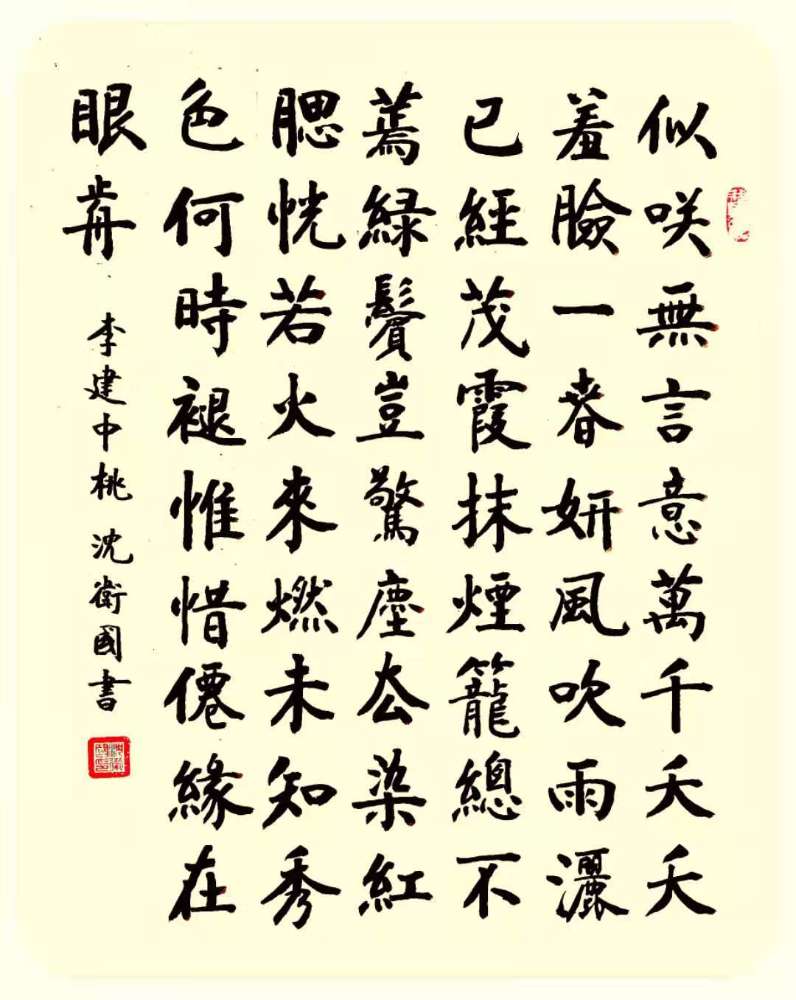 似咲無言意萬千夭夭
羞臉一春妍風吹雨灑
已經茂霞抹煙籠總不
蔫緑鬢豈驚塵厺染紅
腮恍若火來燃未知秀
色何時褪惟惜僊緣在
眼歬
李建中桃 沈衛國書